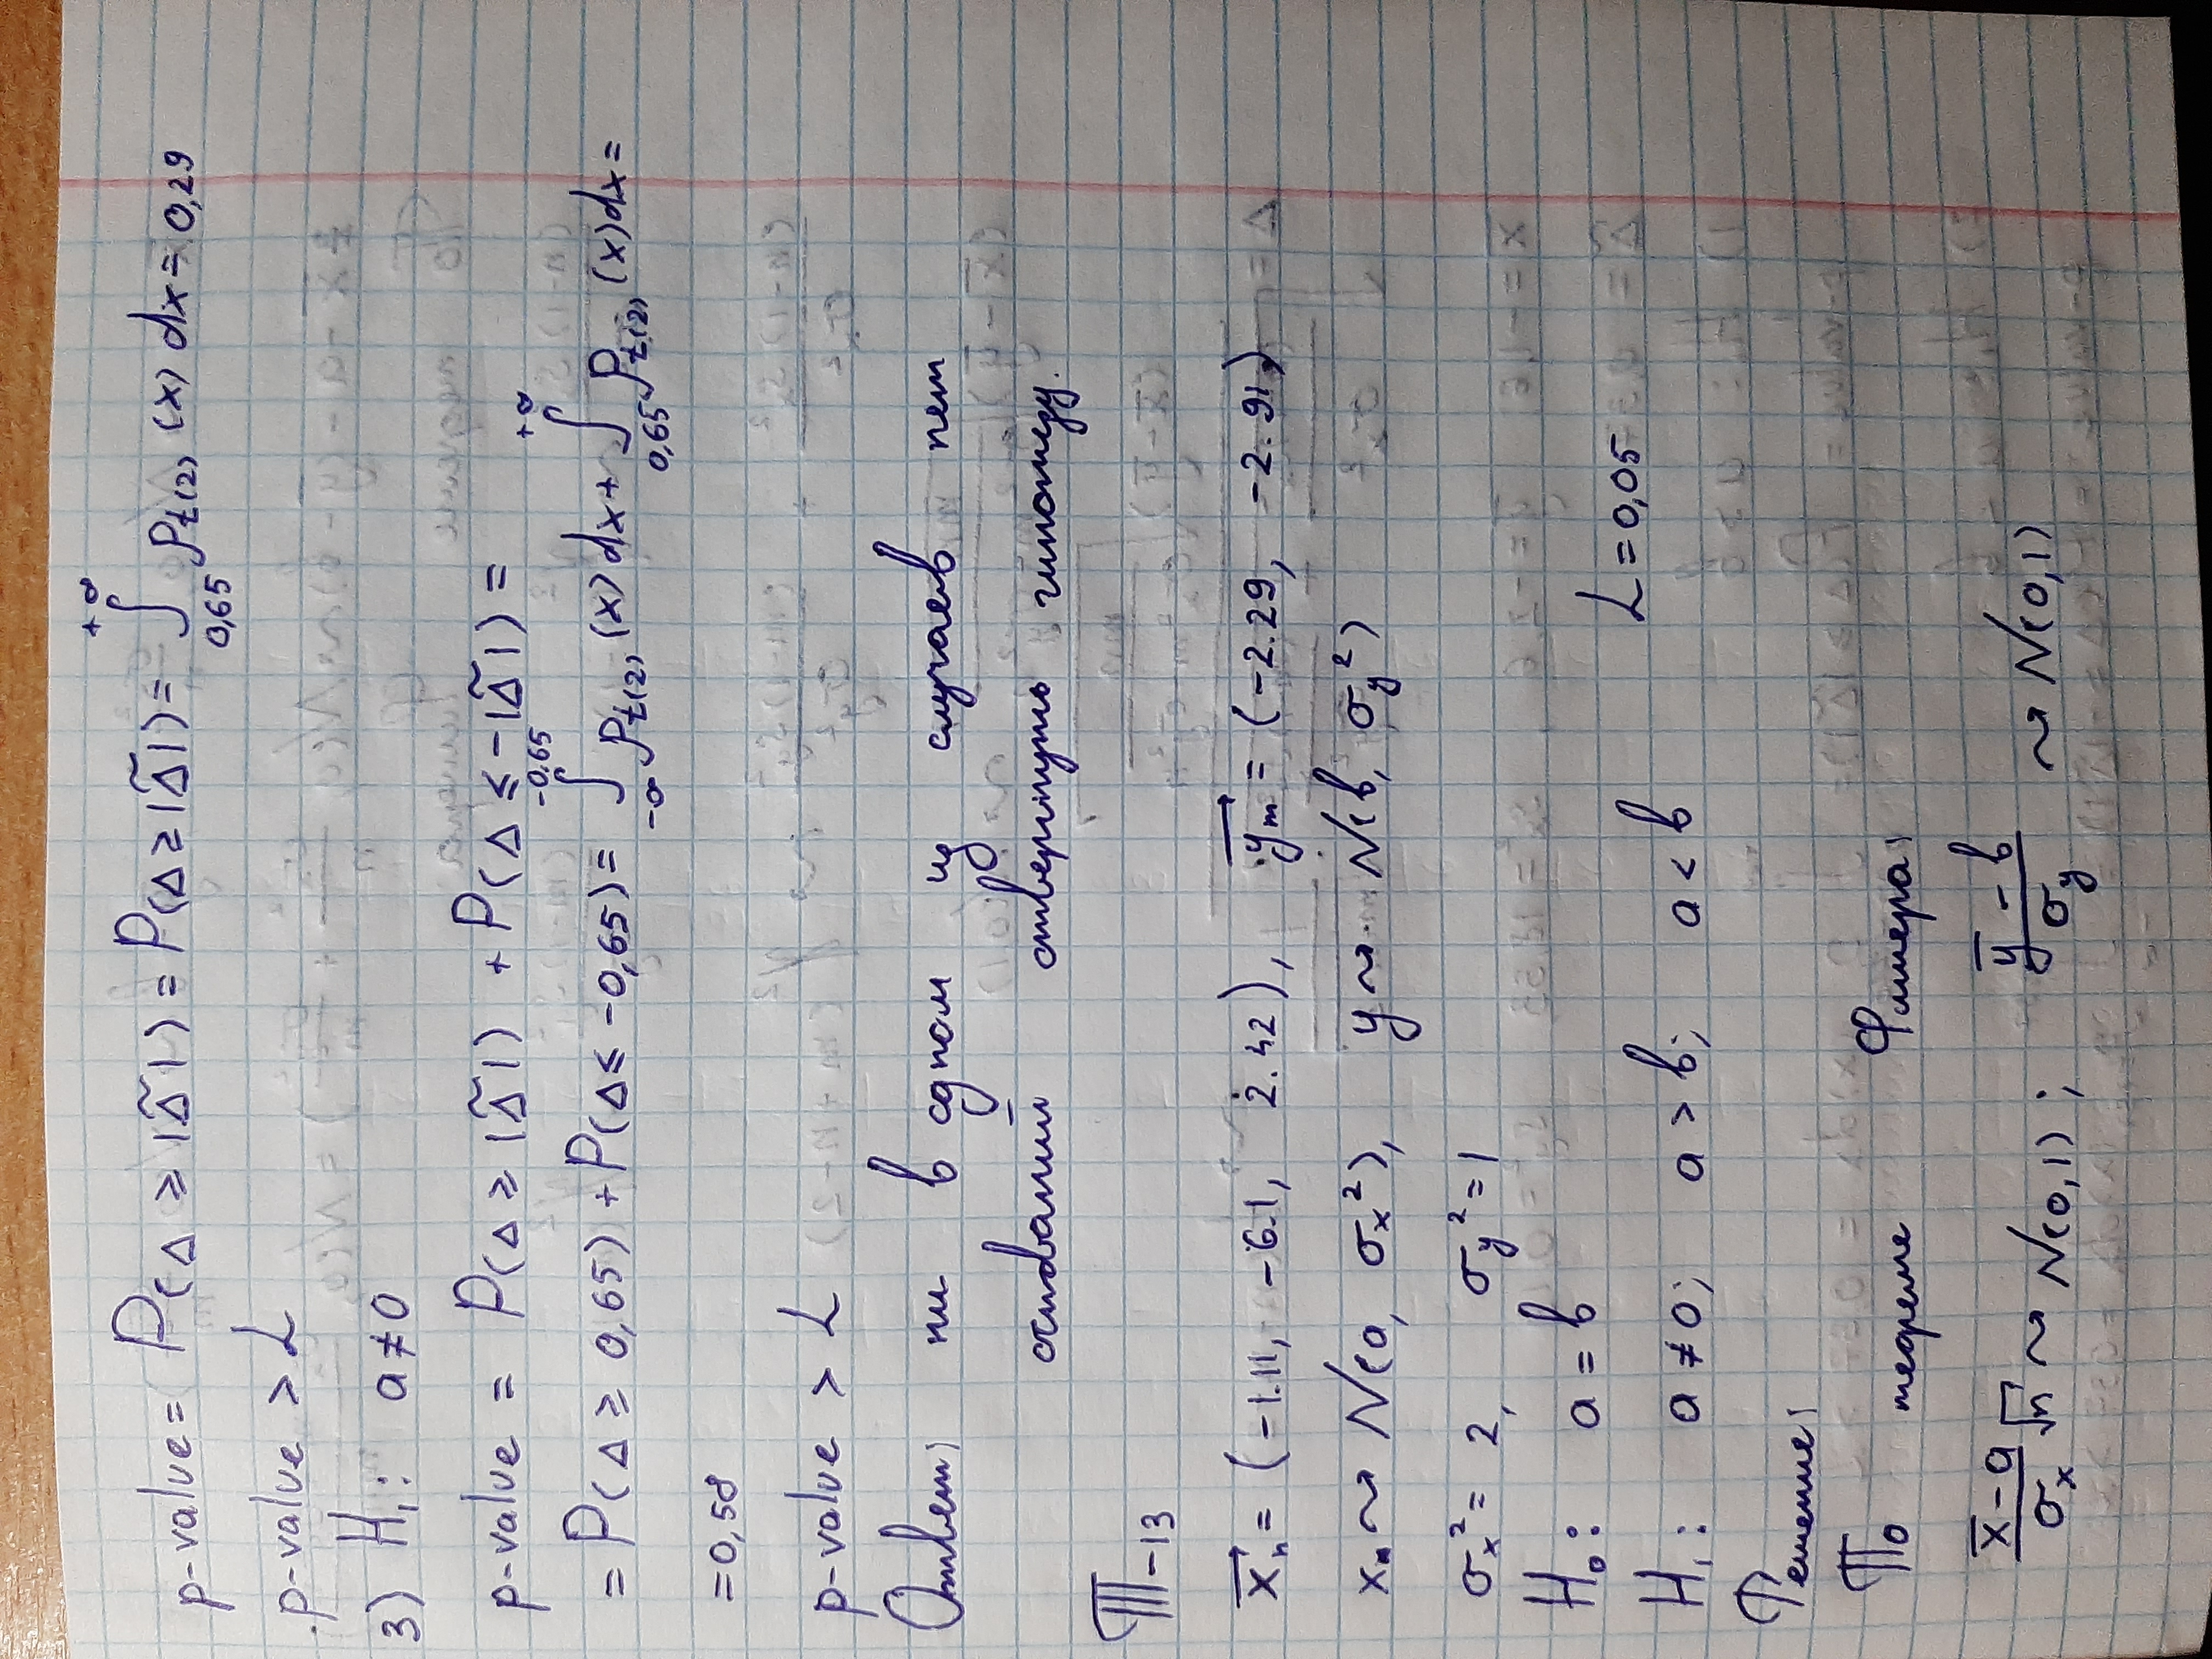 p-value = P(Δ ≥ |Δ̃|) = P(Δ ≥ |Δ̃|) = ∫_{0,65}^{+∞} ρ_{t(2)} (x) dx = 0,29
p-value > L
3) H₁: a ≠ 0
p-value = P(Δ ≥ |Δ̃|) + P(Δ ≤ -|Δ̃|) =
= P(Δ ≥ 0,65) + P(Δ ≤ -0,65) = ∫_{-∞}^{-0,65} ρ_{t(2)} (x) dx + ∫_{0,65}^{+∞} ρ_{t(2)} (x) dx =
= 0,58
p-value > L
Ответ: ни в одном из случаев нет
оснований отвергнуть гипотезу.
T-13
x⃗ₙ = (-1.11, -6.1, 2.42), y⃗ₘ = (-2.29, -2.91)
xₙ ⤳ N(a, σₓ²), y ⤳ N(b, σ_y²)
σₓ² = 2, σ_y² = 1
H₀: a = b
L = 0,05
H₁: a ≠ 0; a > b; a < b
Решение:
По теореме Фишера:
(x̄ - a)/σₓ √n ⤳ N(0,1); (ȳ - b)/σ_y ⤳ N(0,1)